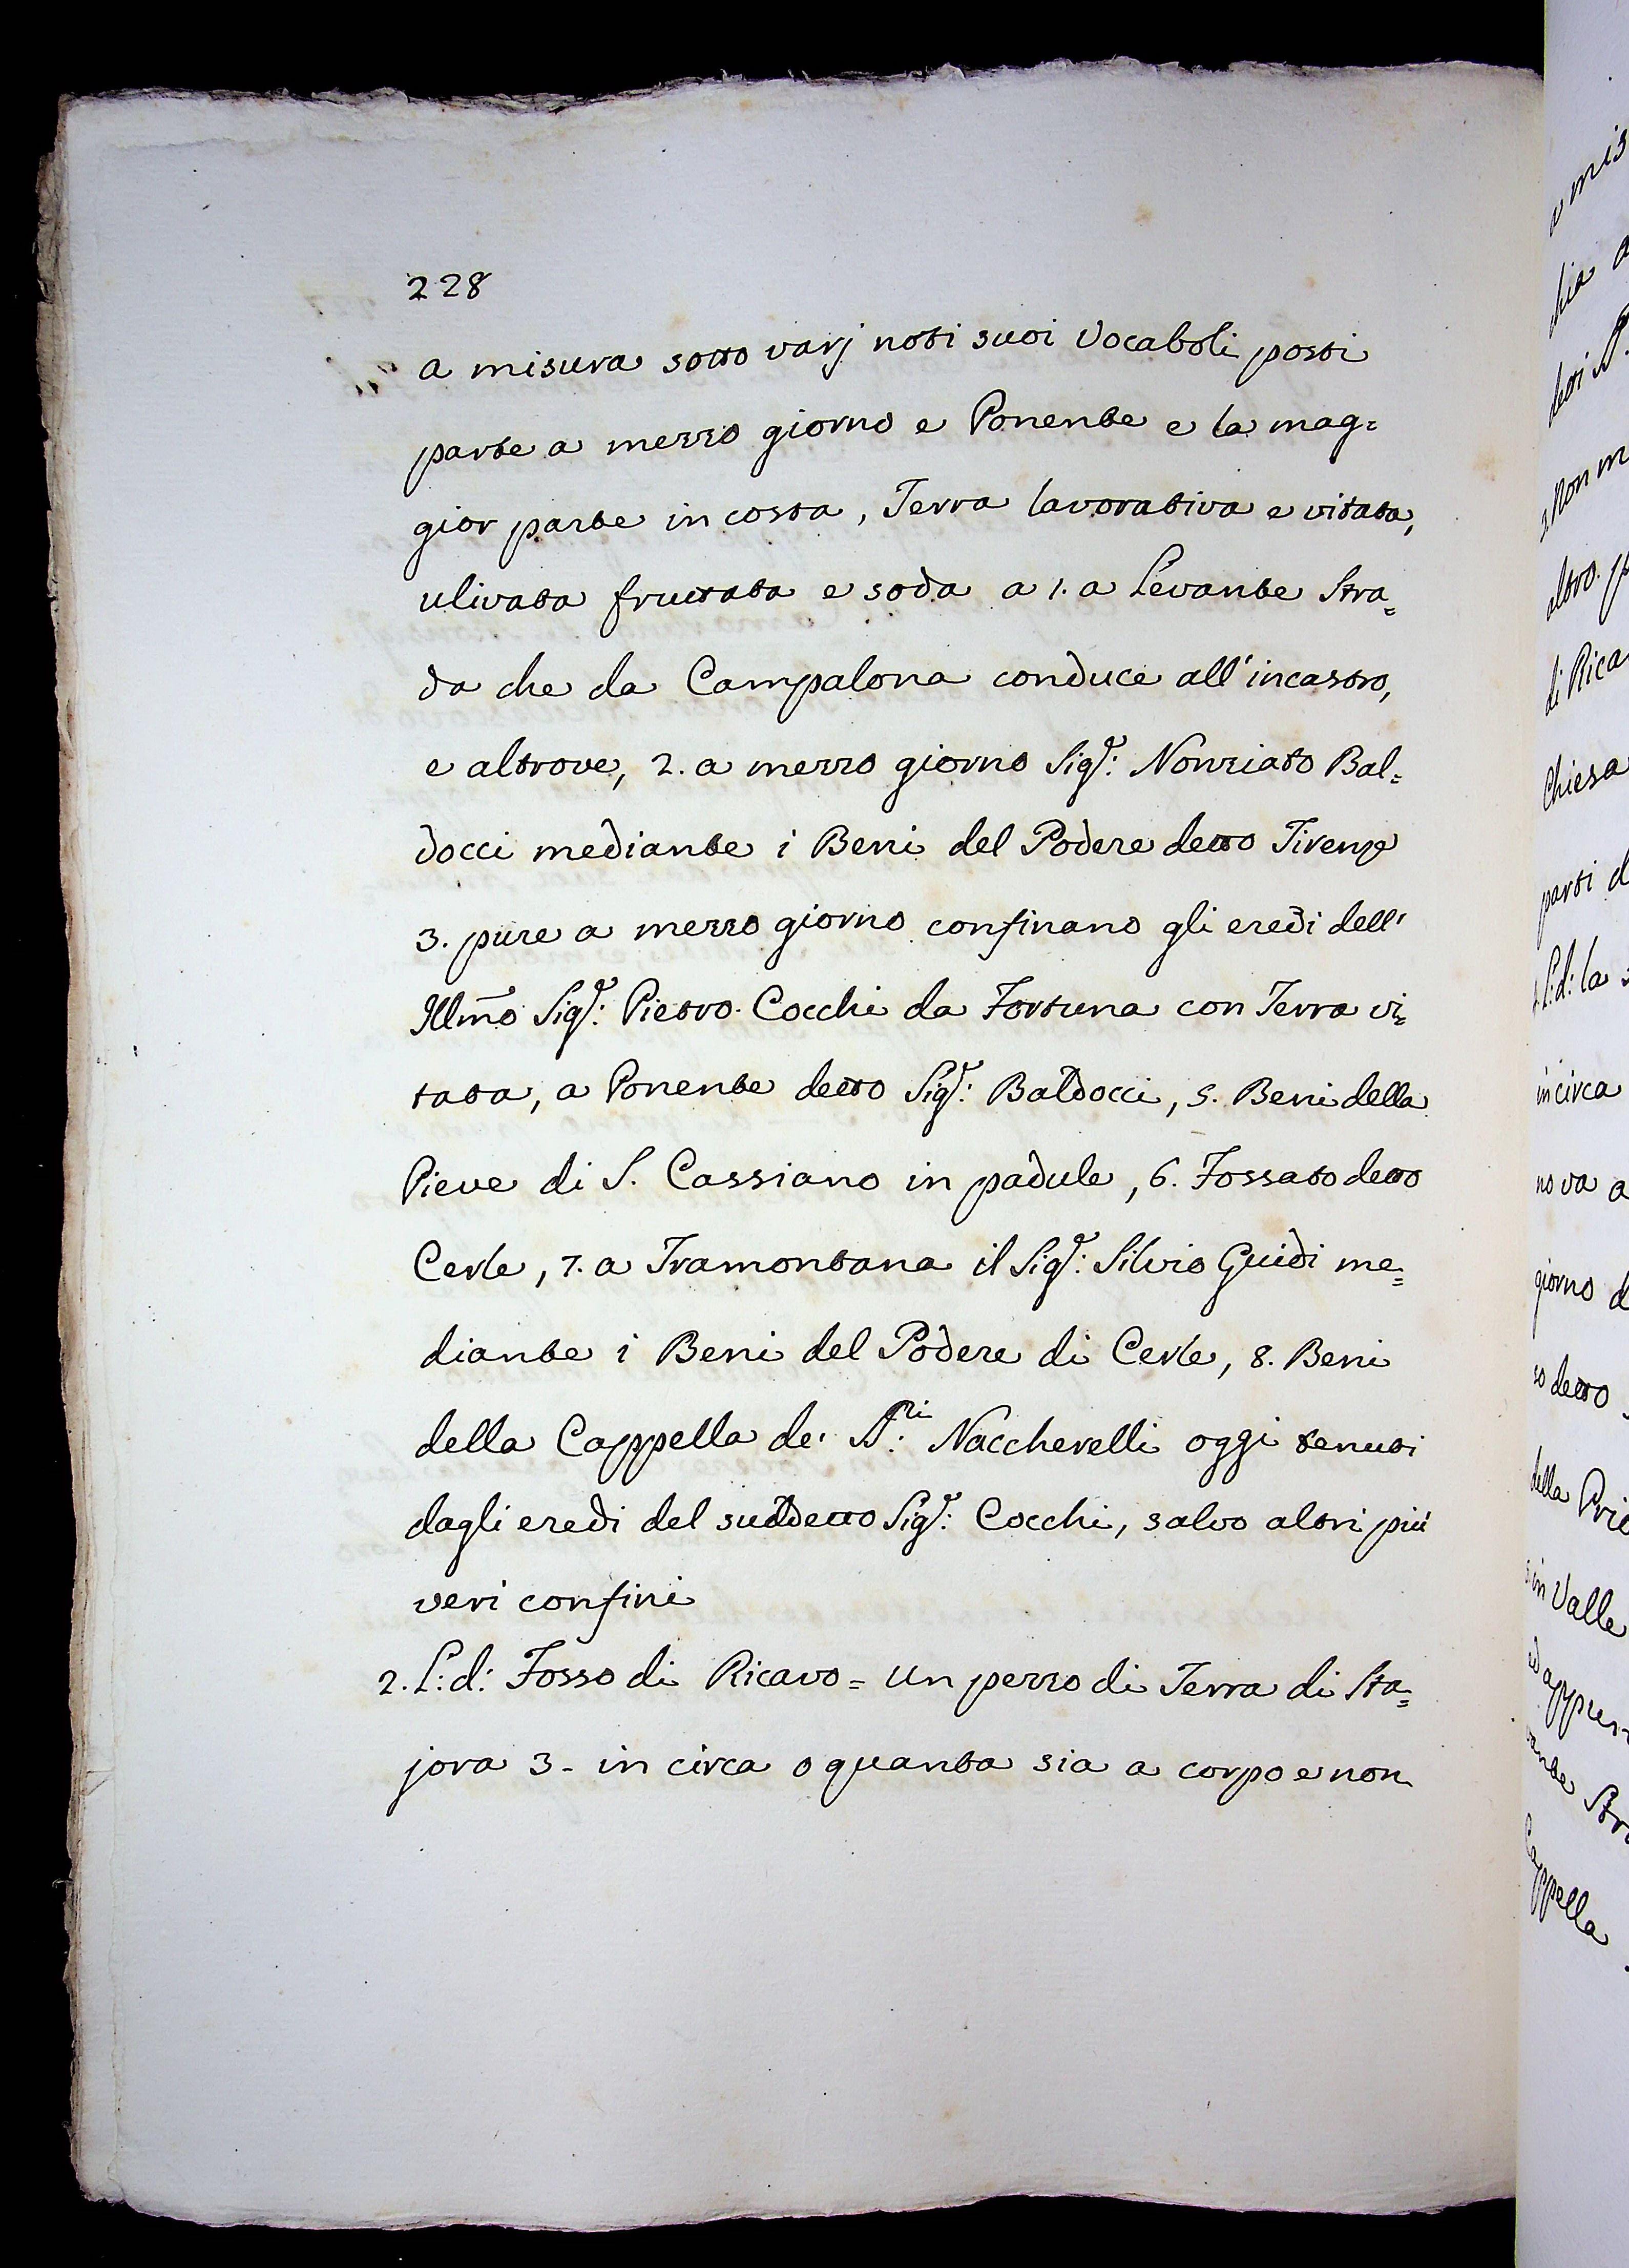 228
a misura sotto varj noti suoi Vocaboli posti
parte a mezzo giorno e Ponente e la mag=
gior parte in costa, Terra lavorativa e vitata,
ulivata fruttata e soda a 1. a Levante Stra=
da che da Campalona conduce all'incastro,
e altrove, 2. a mezzo giorno Sigr: Nonziato Bal=
docci mediante i Beni del Podere detto
3. pure a mezzo giorno confinano gli eredi dell'
Illmo Sigr: Pietro Cocchi da Fortuna con Terra vi=
tata, a Ponente detto Sigr: Baldocci, 5. Beni della
Pieve di S. Cassiano in padule, 6. Fossato detto
Cerle, 7. a Tramontana il Sigr: Silvio Guidi me=
diante i Beni del Podere di Cerle, 8. Beni
della Cappella de' SS:ri Naccherelli oggi tenuti
dagli eredi del suddetto Sigr: Cocchi, salvo altri più
veri confini
2. L:d: Fosso di Ricavo = un pezzo di Terra di Sta=
jora 3- in circa o quanta sia a corpo e non
a mis
chia
detti
Non m
altro p
di Rica
Chiesa
parti d
L:d: la s
in circa
no va a
giorno d
so detto
della Prio
in Valle
ed appun
vante Str
Cappella